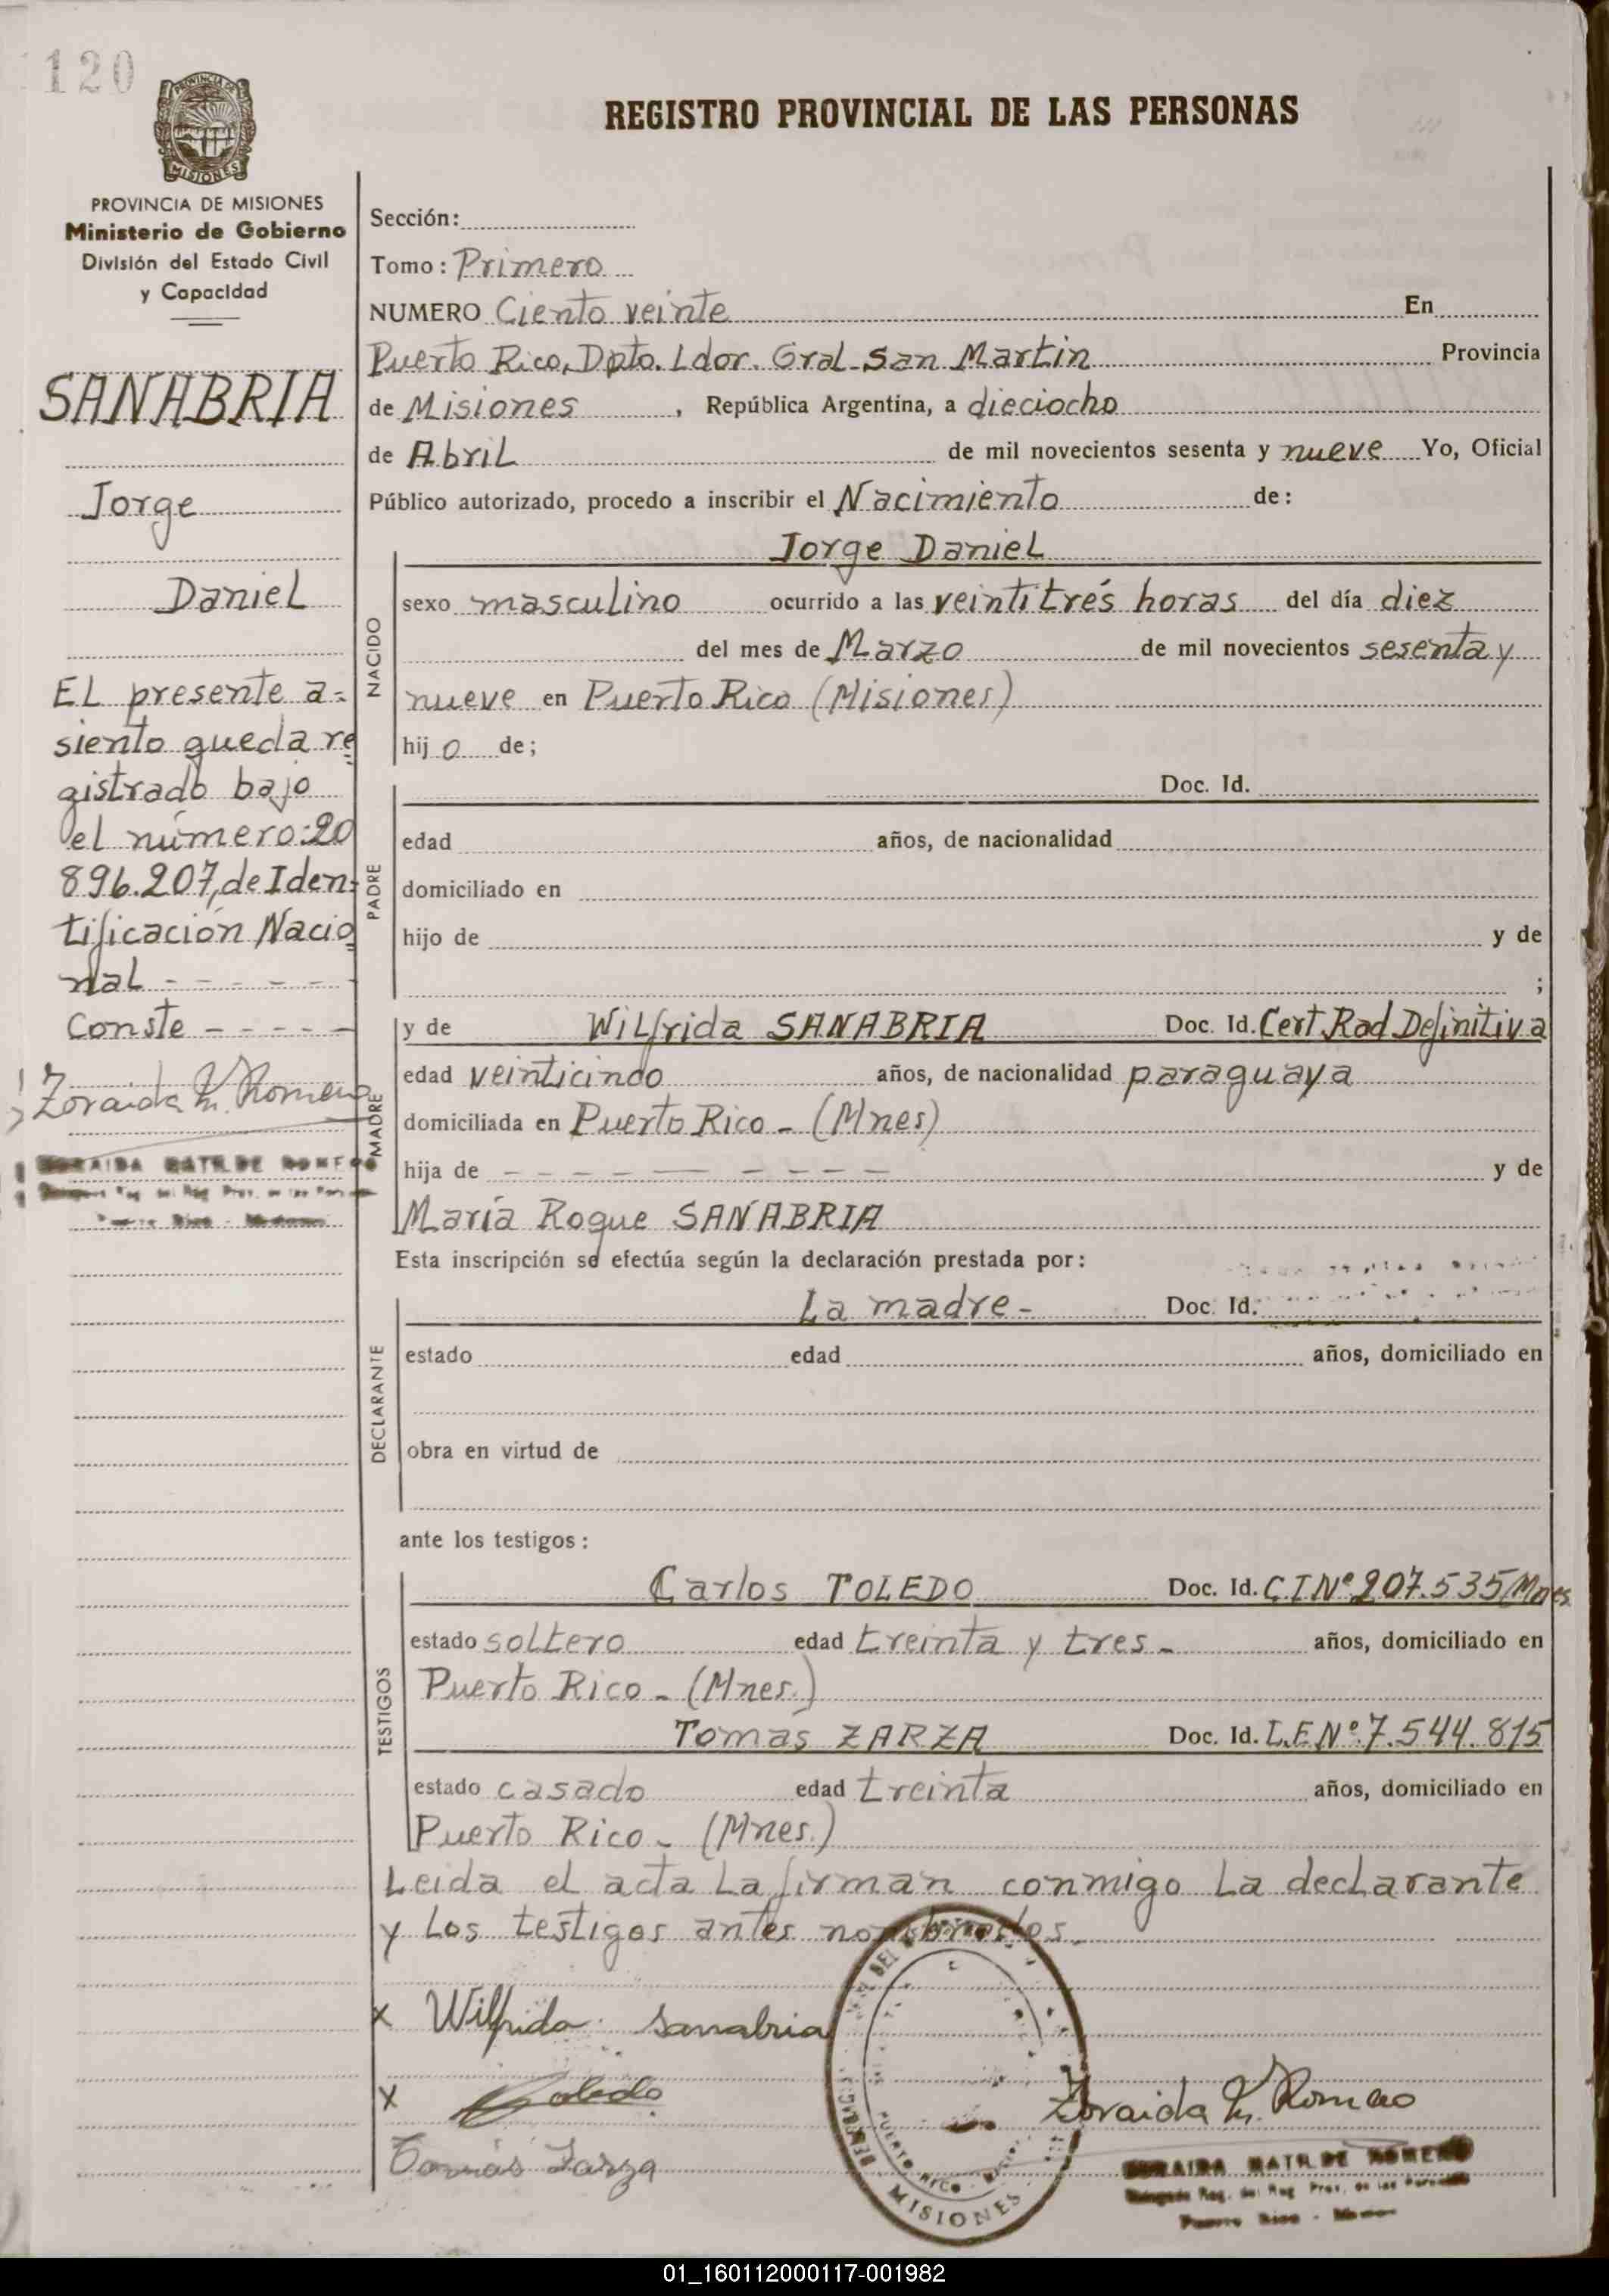 120
PROVINCIA DE
MISIONES
REGISTRO PROVINCIAL DE LAS PERSONAS
PROVINCIA DE MISIONES
Ministerio de Gobierno
División del Estado Civil
y Capacidad
SANABRIA
Jorge
Daniel
EL presente a=
siento queda re
gistrado bajo
el número:20
896.207, de Iden=
tificación Nacio
nal - - - - - -
Conste - - - - -
Zoraida M. Romero
ZORAIDA MATILDE ROMERO
Puerto Rico - Misiones
Sección:
Tomo: Primero
NUMERO Ciento veinte En
Puerto Rico, Dpto. Ldor. Gral. San Martin Provincia
de Misiones, República Argentina, a dieciocho
de Abril de mil novecientos sesenta y nueve Yo, Oficial
Público autorizado, procedo a inscribir el Nacimiento de:
Jorge Daniel
NACIDO
sexo masculino ocurrido a las veintitrés horas del día diez
del mes de Marzo de mil novecientos sesenta y
nueve en Puerto Rico (Misiones)
hijo de;
Doc. Id.
PADRE
edad años, de nacionalidad
domiciliado en
hijo de y de
;
y de Wilfrida SANABRIA Doc. Id. Cert. Rad. Definitiva
MADRE
edad veinticinco años, de nacionalidad paraguaya
domiciliada en Puerto Rico - (Mnes)
hija de - - - - - - - - - y de
María Roque SANABRIA
Esta inscripción se efectúa según la declaración prestada por:
La madre - Doc. Id.
DECLARANTE
estado edad años, domiciliado en
obra en virtud de
ante los testigos:
Carlos TOLEDO Doc. Id. C.I.Nº 207.535/Mnes
TESTIGOS
estado soltero edad treinta y tres - años, domiciliado en
Puerto Rico - (Mnes.)
Tomás ZARZA Doc. Id. L.E.Nº 7.544.815
estado casado edad treinta años, domiciliado en
Puerto Rico - (Mnes.)
Leida el acta la firman conmigo la declarante
y los testigos antes nombrados.
x Wilfrida Sanabria
x Toledo
Tomás Zarza
PUERTO RICO
MISIONES
Zoraida M. Romero
ZORAIDA MATILDE ROMERO
Puerto Rico - Misiones
01_160112000117-001982